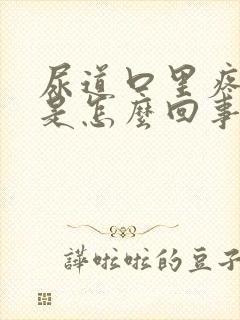 尿道口里疼
是怎麼回事
譁啦啦的豆子